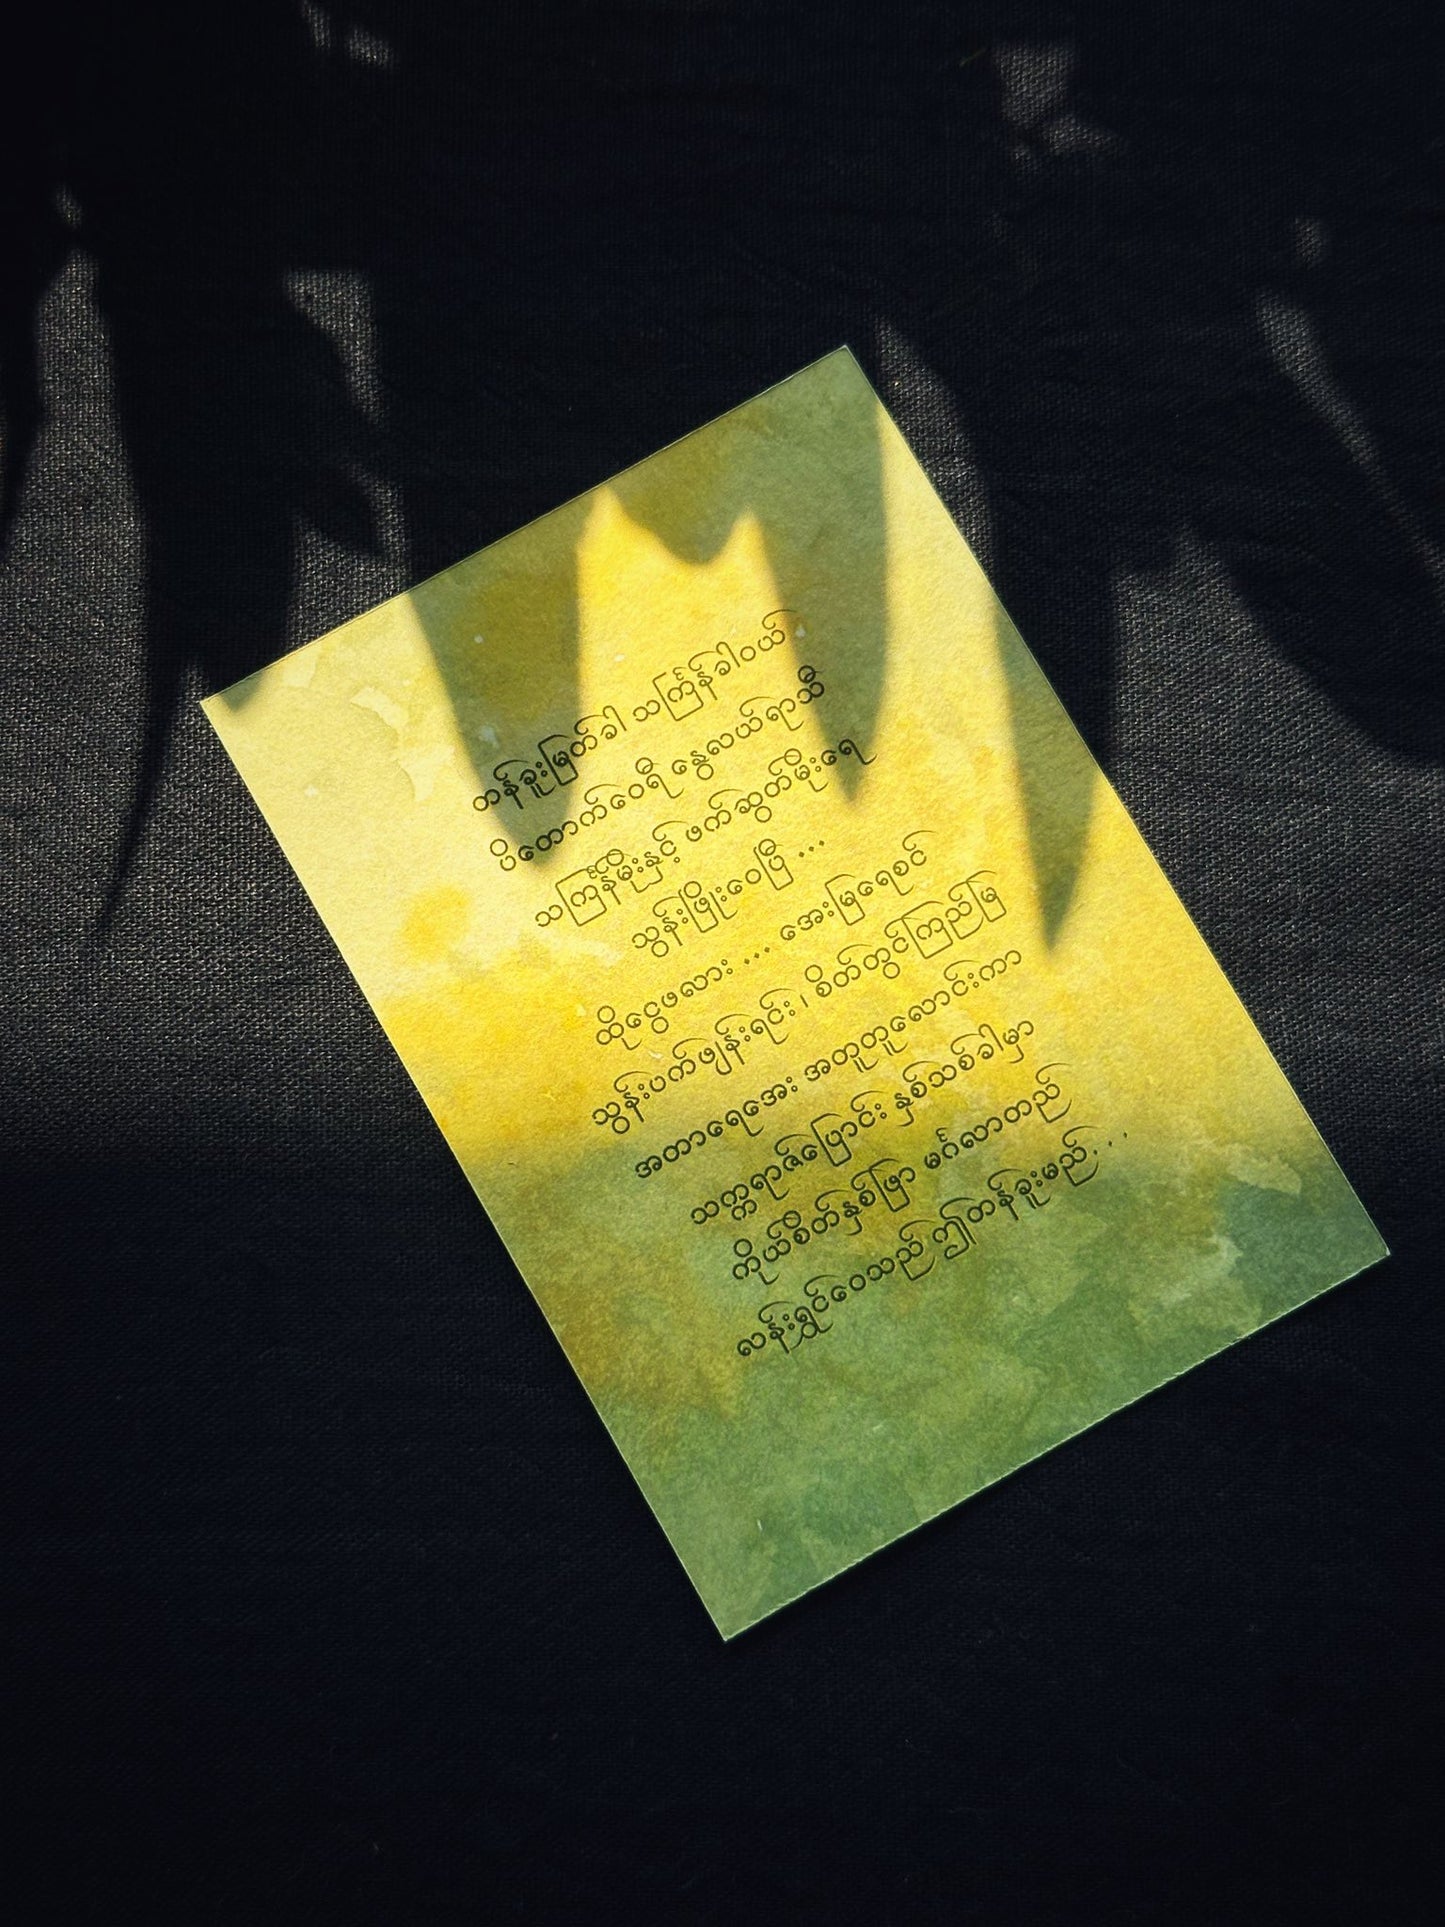 တန်ခူးမြတ်ခါ သင်္ကြန်ခါဝယ်
ပိတောက်ဝေရီ နွေလယ်ရာသီ
သင်္ကြန်မိုးနှင့် ဖက်ဆွတ်မိုးရေ
သွန်းဖြိုးဝေပြီ ...
ထိုငွေဖလား ... အေးမြရေစင်
သွန်းပက်ဖျန်းရင်း ၊ စိတ်တွင်ကြည်မြ
အတာရေအေး အတူတူလောင်းကာ
သက္ကရာဇ်ပြောင်း နှစ်သစ်ခါမှာ
ကိုယ်စိတ်နှစ်ဖြာ မင်္ဂလာတည်
လန်းရွှင်ဝေသည် ဤတန်ခူးမည်...